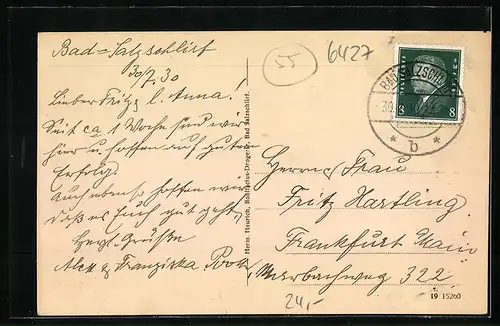 Bad-Salzschlirf
30/7.30
Lieber Fritz, l. Anna!
Seit ca 1 Woche sind wir
hier u. hoffen auf guten
Erfolg.
Auch ebenso hoffen wir
daß es Euch gut geht,
Herzl. Grüße
Alex & Franziska
55
6427
Herm. Heurich, Bonifazius-Drogerie, Bad Salzschlirf.
BAD SALZSCHLIRF
30
b
8 8
Herrn u. Frau
Fritz Hartling
Frankfurt Main
Marbachweg 322
24,-
19 15260